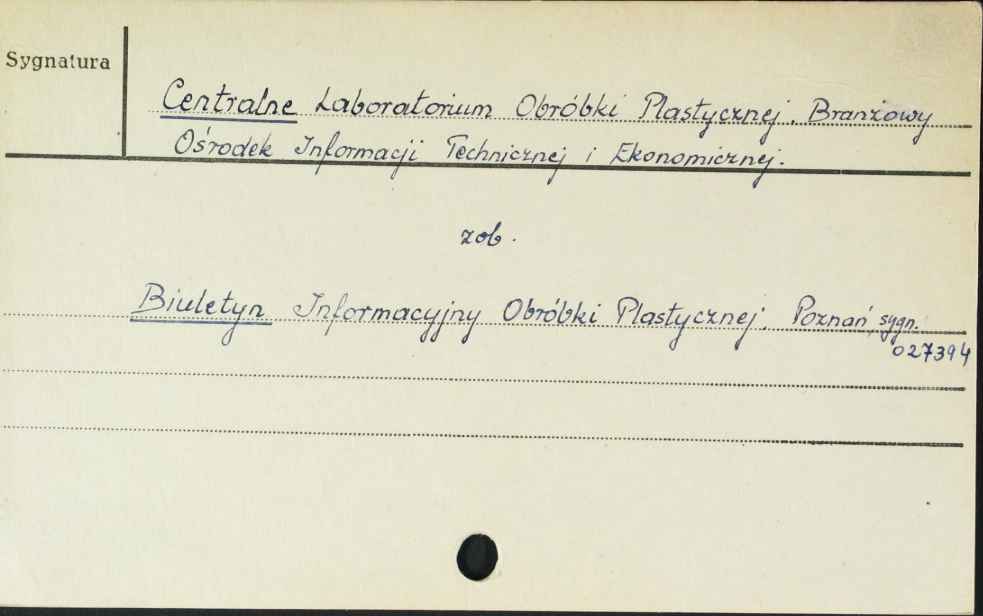 Sygnatura
Centralne Laboratorium Obróbki Plastycznej. Branżowy
Ośrodek Informacji Technicznej i Ekonomicznej.
zob.
Biuletyn Informacyjny Obróbki Plastycznej. Poznań, sygn.
027394